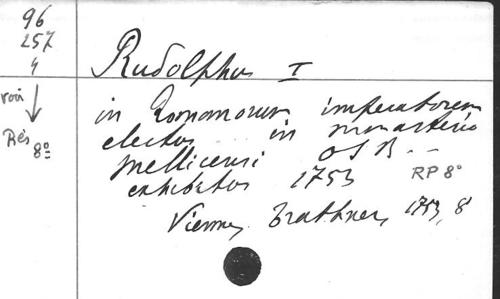 96
257
4
voir
Rés
8º
Rudolphus I
in Romanorum imperatorem
electus in monasterio
Mellicensi OSB --
exhibetus 1753 RP 8º
Vienne, Trattner, 1753, 8º